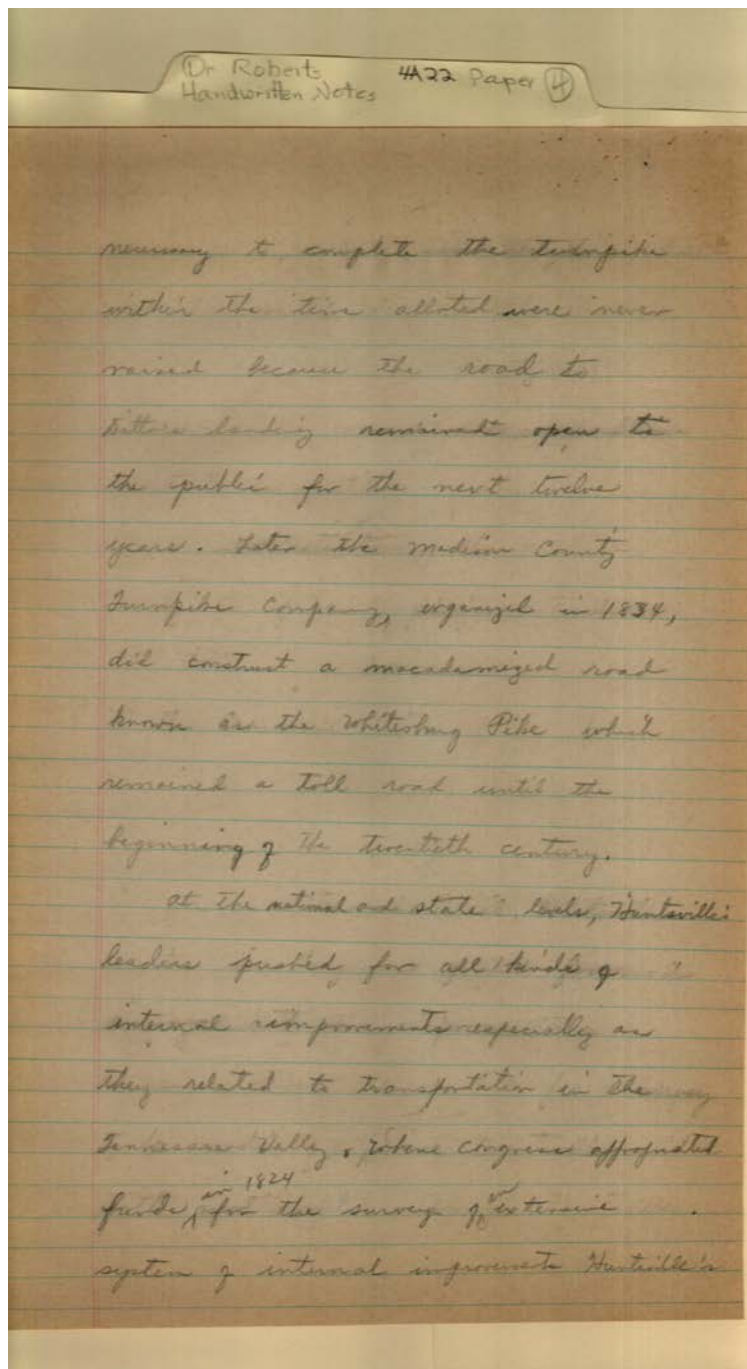 Dr Roberts 4A22 Paper 4
Handwritten Notes
necessary to complete the turnpike
within the time alloted were never
raised because the road to
Ditto's landing remained open to
the public for the next twelve
years. Later the Madison County
Turnpike Company, organized in 1834,
did construct a macadamized road
known as the Whitesburg Pike which
remained a toll road until the
beginning of the twentieth century.
At the national and state levels, Huntsville's
leaders pushed for all kinds of
internal improvements especially as
they related to transportation in the
Tennessee Valley. When congress appropriated
in 1824 an
funds for the survey of extensive
system of internal improvements Huntsville's